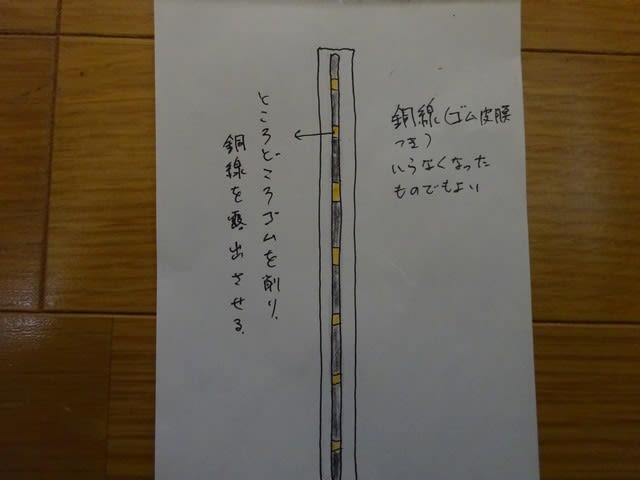 銅線(ゴム皮膜
つき)
いらなくなった
ものでもよい
ところどころゴムを削り、
銅線を露出させる。